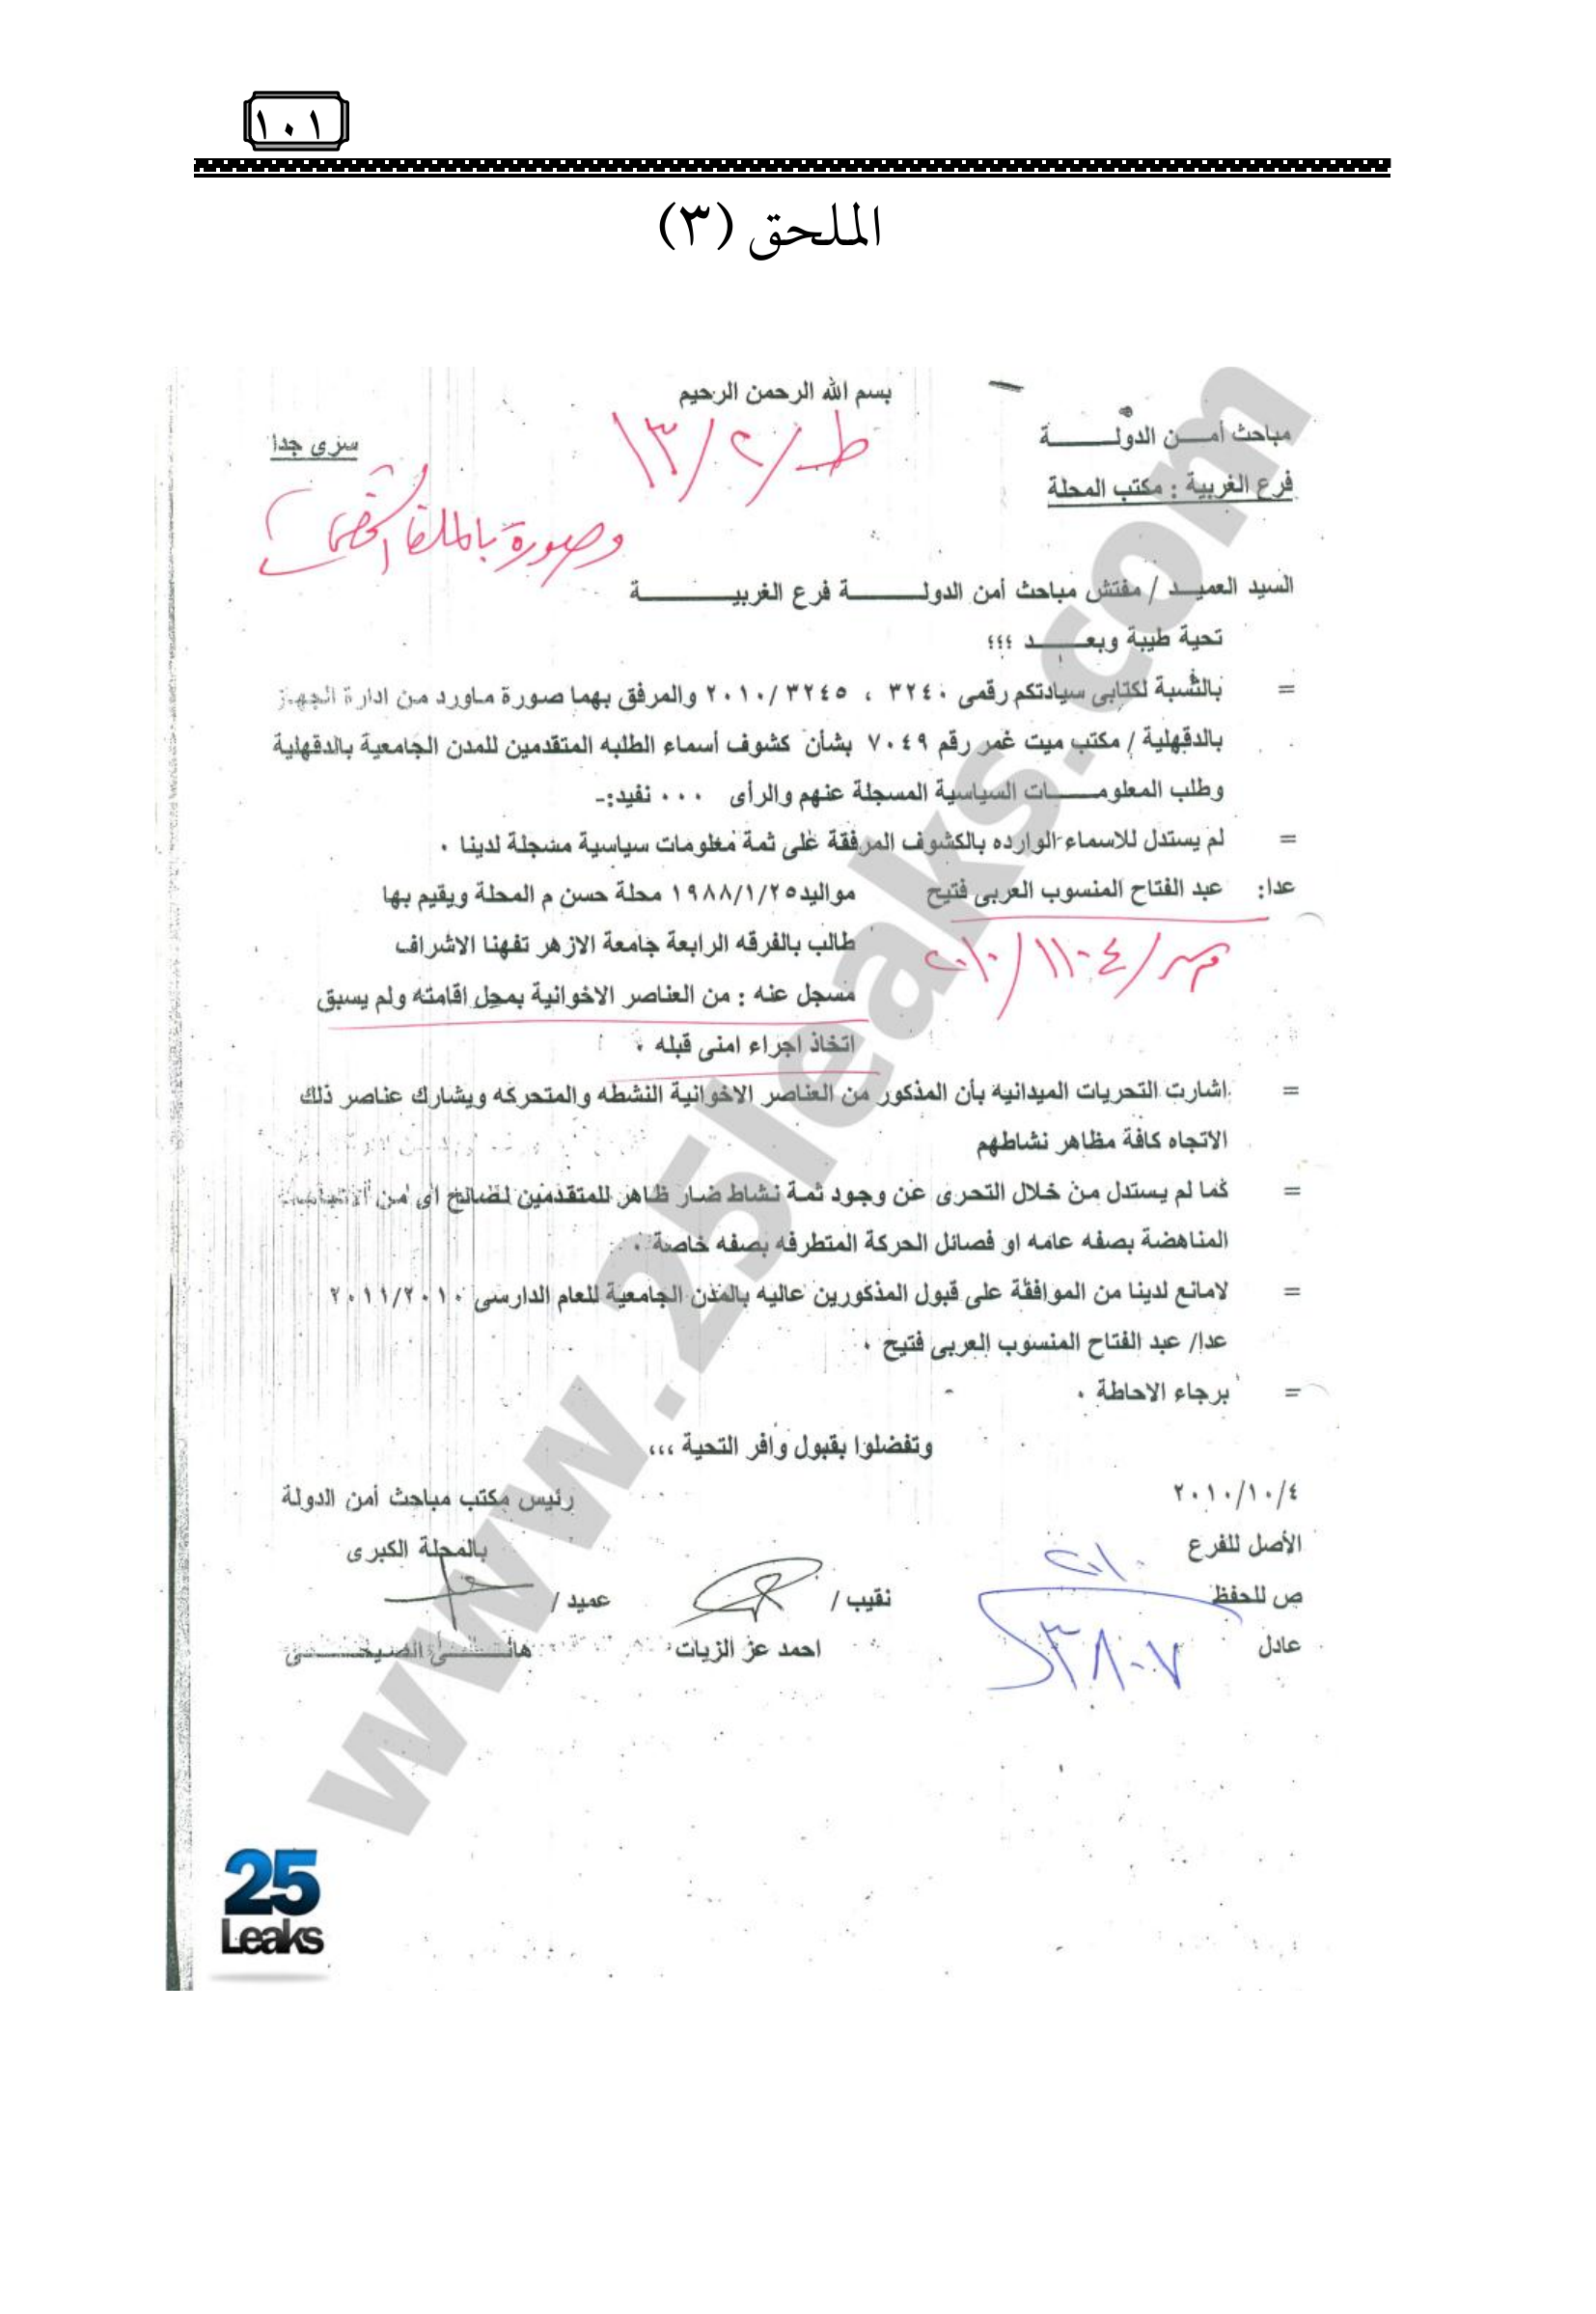 ١٠١
الملحق (٣)
بسم الله الرحمن الرحيم
مباحث أمن الدولة
سرى جدا
ط/٢/١٣
فرع الغربية : مكتب المحلة
وصورة بالملف الشخصى
السيد العميد / مفتش مباحث أمن الدولة فرع الغربية
تحية طيبة وبعد ؛؛؛
= بالنسبة لكتابى سيادتكم رقمى ٣٢٤٠ ، ٣٢٤٥ /٢٠١٠ والمرفق بهما صورة ماورد من ادارة الجهاز
بالدقهلية / مكتب ميت غمر رقم ٧٠٤٩ بشأن كشوف أسماء الطلبه المتقدمين للمدن الجامعية بالدقهلية
وطلب المعلومات السياسية المسجلة عنهم والرأى ٠٠٠ نفيد:-
= لم يستدل للاسماء الوارده بالكشوف المرفقة على ثمة معلومات سياسية مسجلة لدينا ٠
عدا: عبد الفتاح المنسوب العربى فتيح مواليد٢٥/١/١٩٨٨ محلة حسن م المحلة ويقيم بها
طالب بالفرقه الرابعة جامعة الازهر تفهنا الاشراف
١١٠٤/٢٠١٠
مسجل عنه : من العناصر الاخوانية بمحل اقامته ولم يسبق
اتخاذ اجراء امنى قبله ٠
= اشارت التحريات الميدانيه بأن المذكور من العناصر الاخوانية النشطه والمتحركه ويشارك عناصر ذلك
الاتجاه كافة مظاهر نشاطهم
= كما لم يستدل من خلال التحرى عن وجود ثمة نشاط ضار ظاهر للمتقدمين لصالح اى من
المناهضة بصفه عامه او فصائل الحركة المتطرفه بصفه خاصة ٠
= لامانع لدينا من الموافقة على قبول المذكورين عاليه بالمدن الجامعية للعام الدارسى ٢٠١١/٢٠١٠
عدا/ عبد الفتاح المنسوب العربى فتيح ٠
= برجاء الاحاطة ٠
وتفضلوا بقبول وافر التحية ،،،
٢٠١٠/١٠/٤
رئيس مكتب مباحث أمن الدولة
الأصل للفرع
بالمحلة الكبرى
ص للحفظ
نقيب /
عميد /
عادل
احمد عز الزيات
هانى
٣٨٠٧
www.25leaks.com
25
Leaks